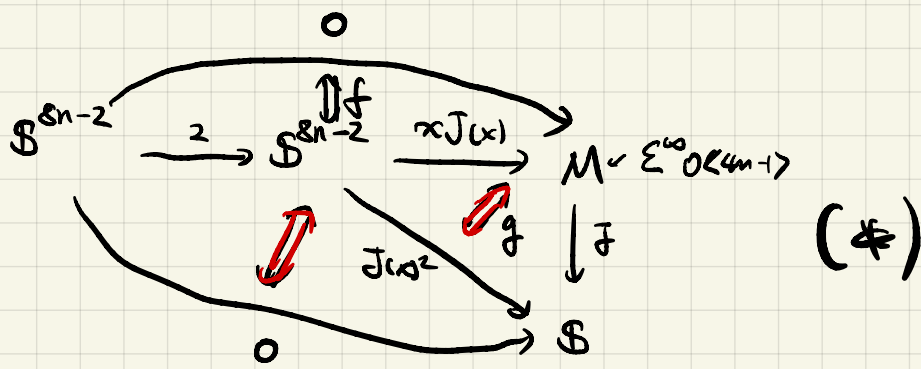 0
⇕ f
𝕊^{8n-2} 2 𝕊^{8n-2} xJ(x) M ← Σ^∞ O<4n-1>
g J (*)
J(x)^2
0 𝕊